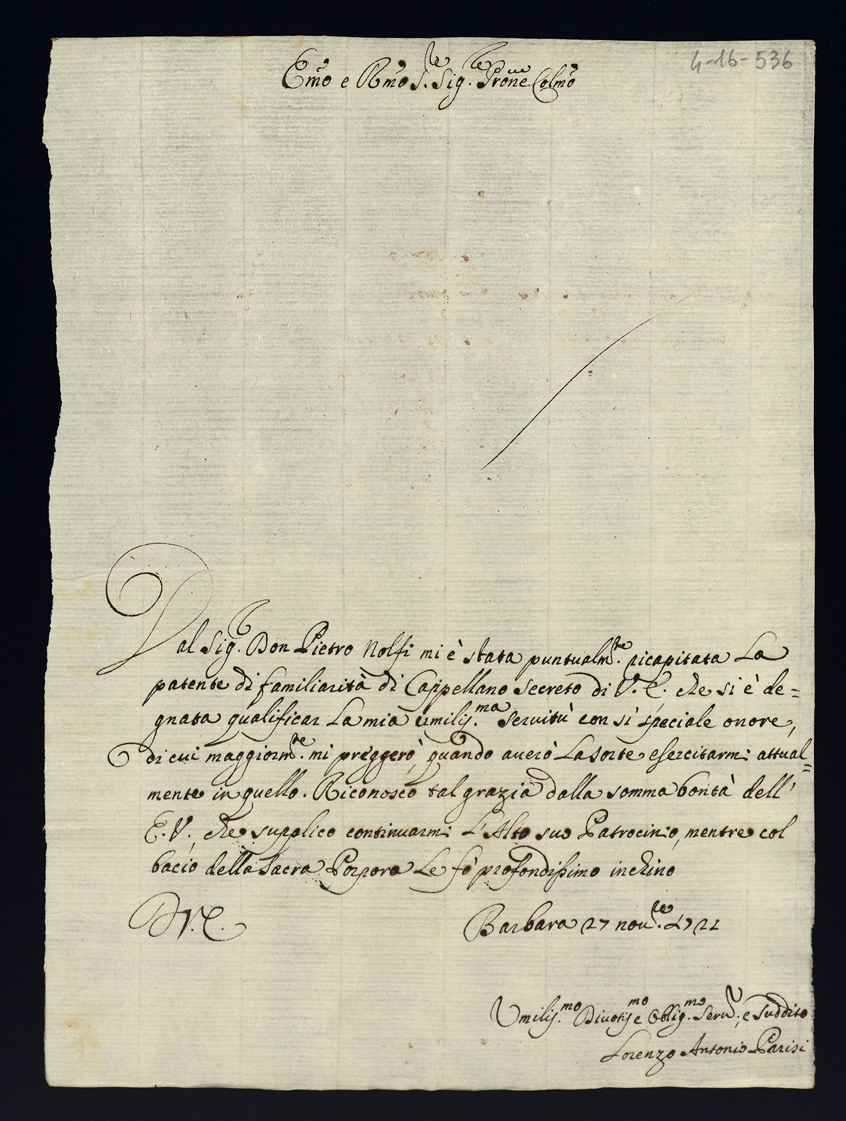 4-16-536
Em̃o e Rm̃o S.re Sig.re Prone Colmo
Dal Sig.r Don Pietro Nolfi mi è stata puntualm.te ricapitata La
patente di familiarità di Cappellano Secreto di V. E. che si è de=
gnata qualificar La mia umiliss.ma servitù con sì speciale onore,
di cui maggiorm.te mi preggerò, quando auerò La sorte esercitarmi attual=
mente in quello. Riconosco tal grazia dalla somma bontà dell'
E. V., che supplico continuarmi L'Alto suo Patrocinio, mentre col
bacio della Sacra Porpora Le fò profondissimo inchino
D V. E.
Barbara 27 nou.re 1721
Umiliss.mo Diuotiss.mo e Oblig.mo Seru.r, e Suddito
Lorenzo Antonio Parisi